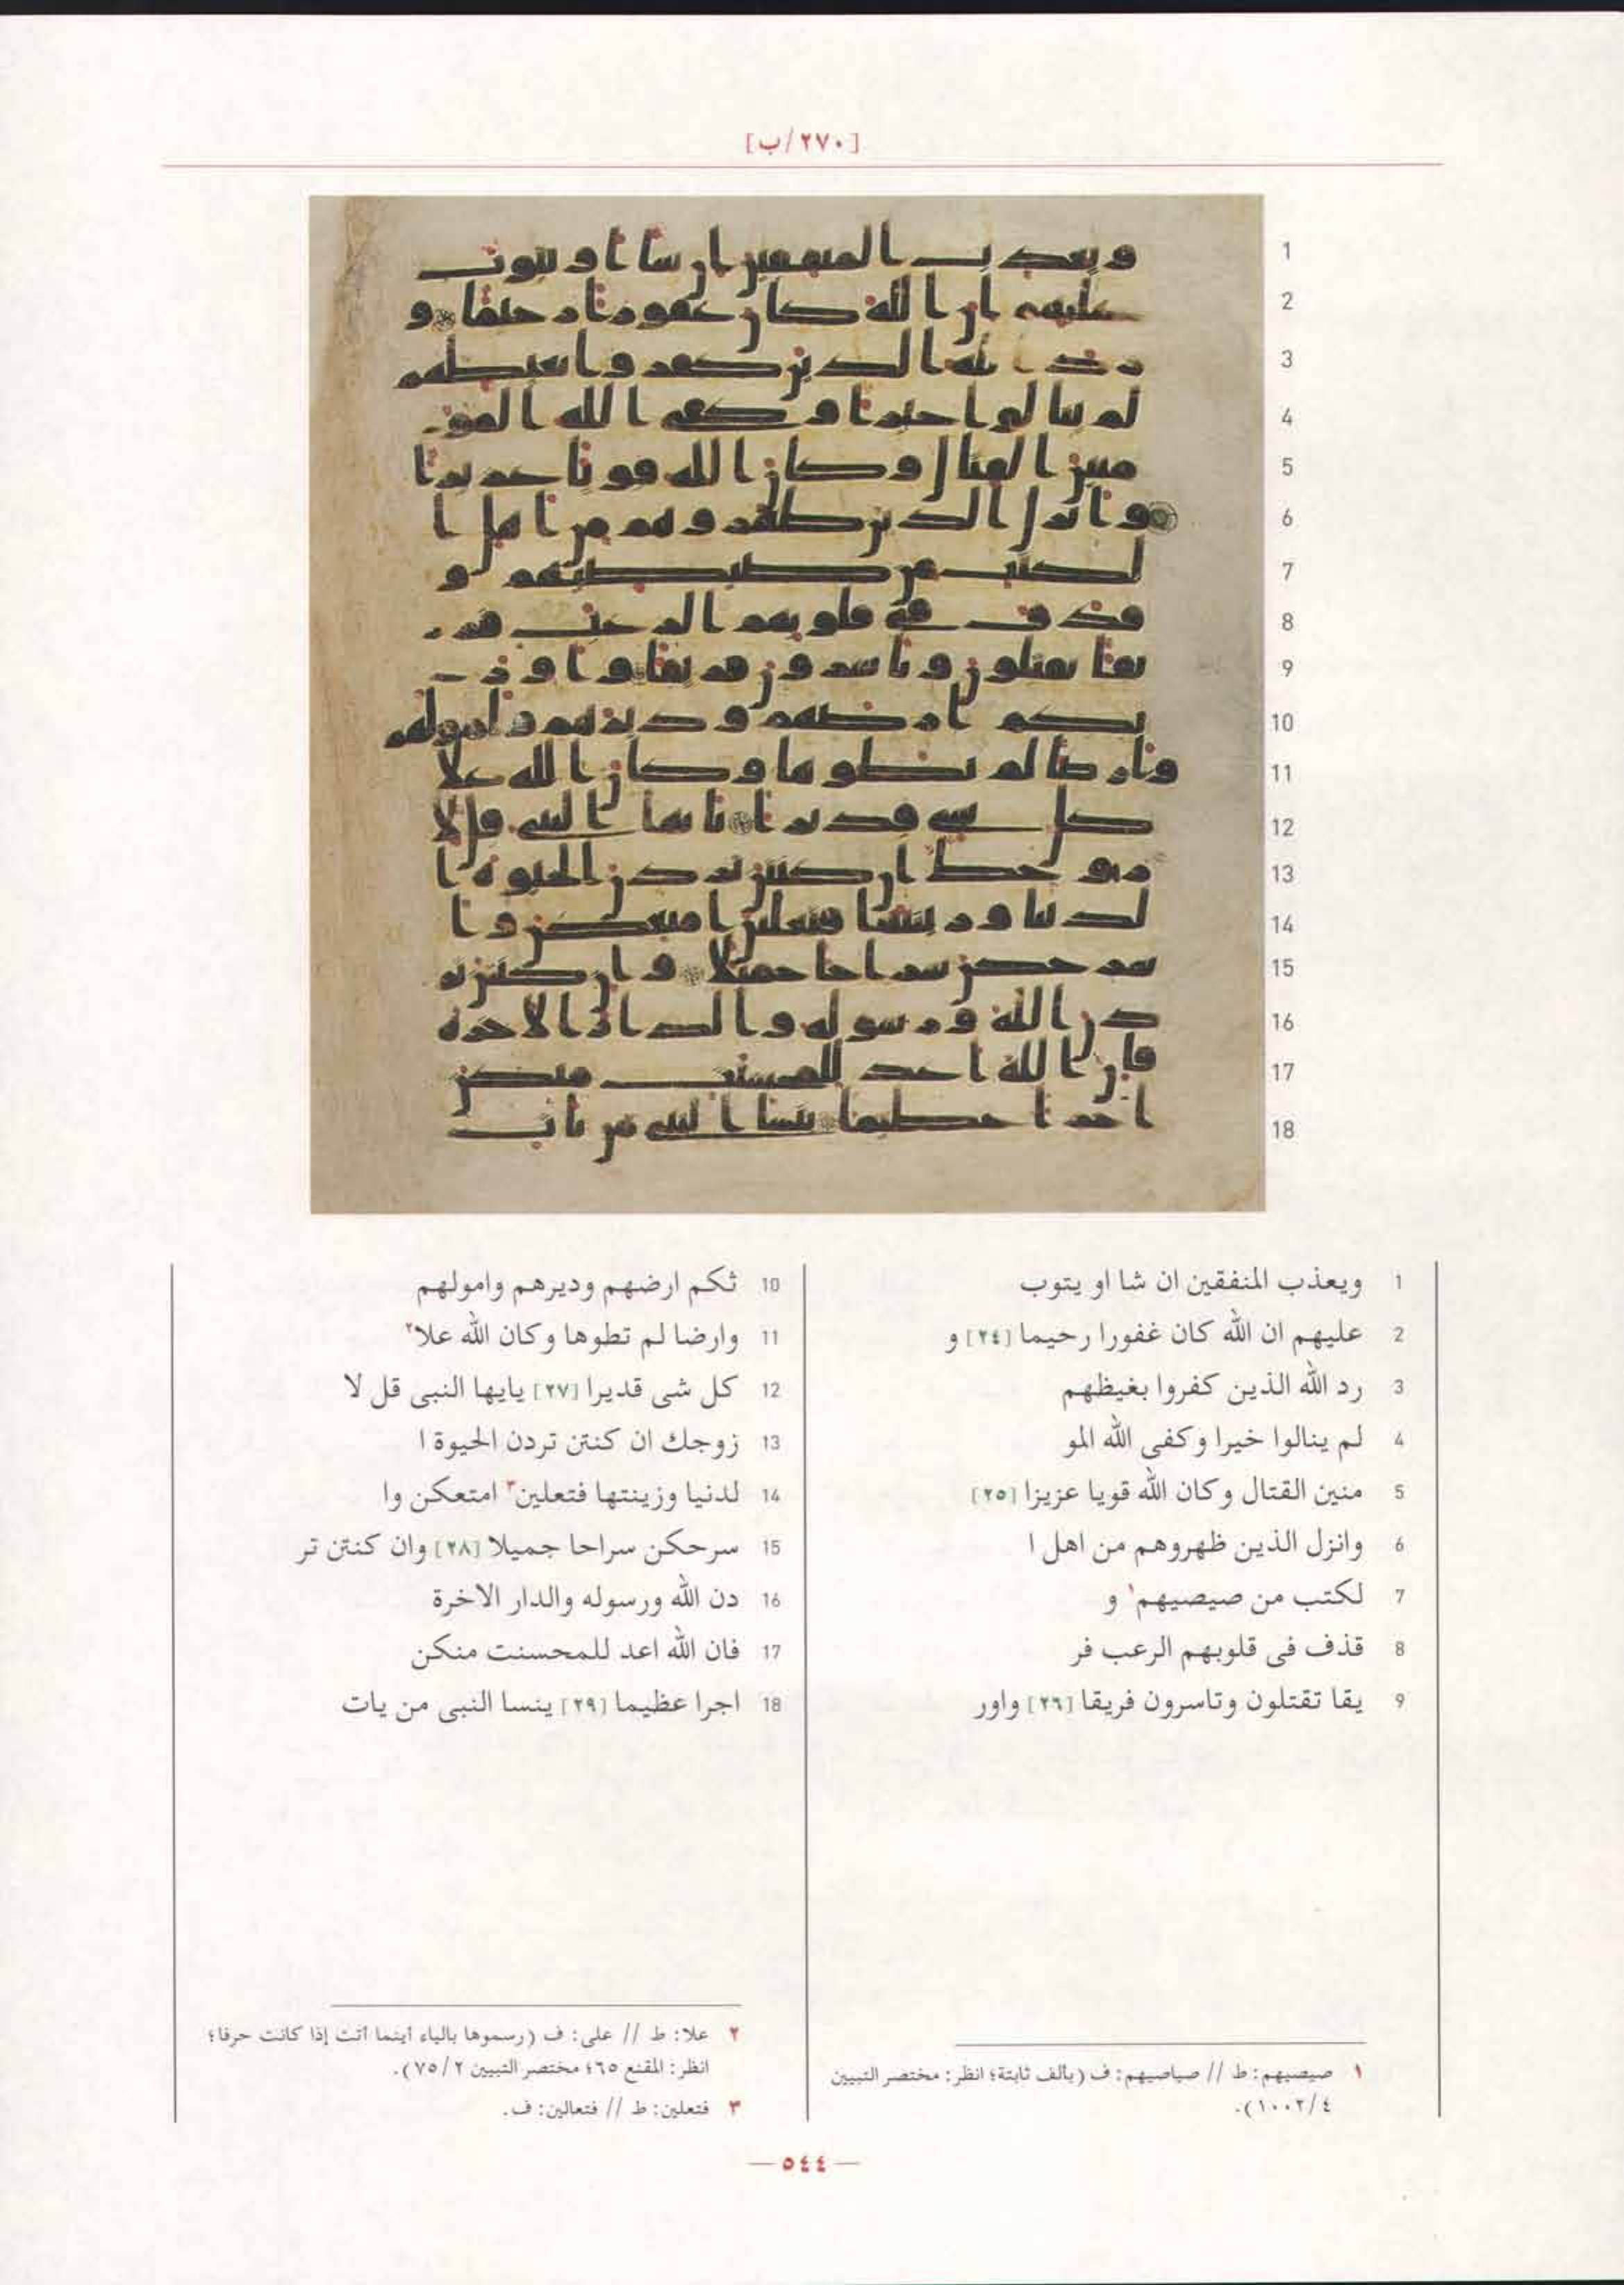 [٢٧٠/ب]
1 ويعذب المنفقين ان شا او يتوب
2 عليهم ان الله كان غفورا رحيما [٢٤] و
3 رد الله الذين كفروا بغيظهم
4 لم ينالوا خيرا وكفى الله المو
5 منين القتال وكان الله قويا عزيزا [٢٥]
6 وانزل الذين ظهروهم من اهل ا
7 لكتب من صيصيهم١ و
8 قذف فى قلوبهم الرعب فر
9 يقا تقتلون وتاسرون فريقا [٢٦] واور
10 ثكم ارضهم وديرهم وامولهم
11 وارضا لم تطوها وكان الله علا٢
12 كل شى قديرا [٢٧] يايها النبى قل لا
13 زوجك ان كنتن تردن الحيوة ا
14 لدنيا وزينتها فتعلين٣ امتعكن وا
15 سرحكن سراحا جميلا [٢٨] وان كنتن تر
16 دن الله ورسوله والدار الاخرة
17 فان الله اعد للمحسنت منكن
18 اجرا عظيما [٢٩] ينسا النبى من يات
١ صيصيهم: ط // صياصيهم: ف (بألف ثابتة؛ انظر: مختصر التبيين
٤/١٠٠٢).
٢ علا: ط // على: ف (رسموها بالياء أينما أتت إذا كانت حرفا؛
انظر: المقنع ٦٥؛ مختصر التبيين ٢/٧٥).
٣ فتعلين: ط // فتعالين: ف.
— ٥٤٤ —